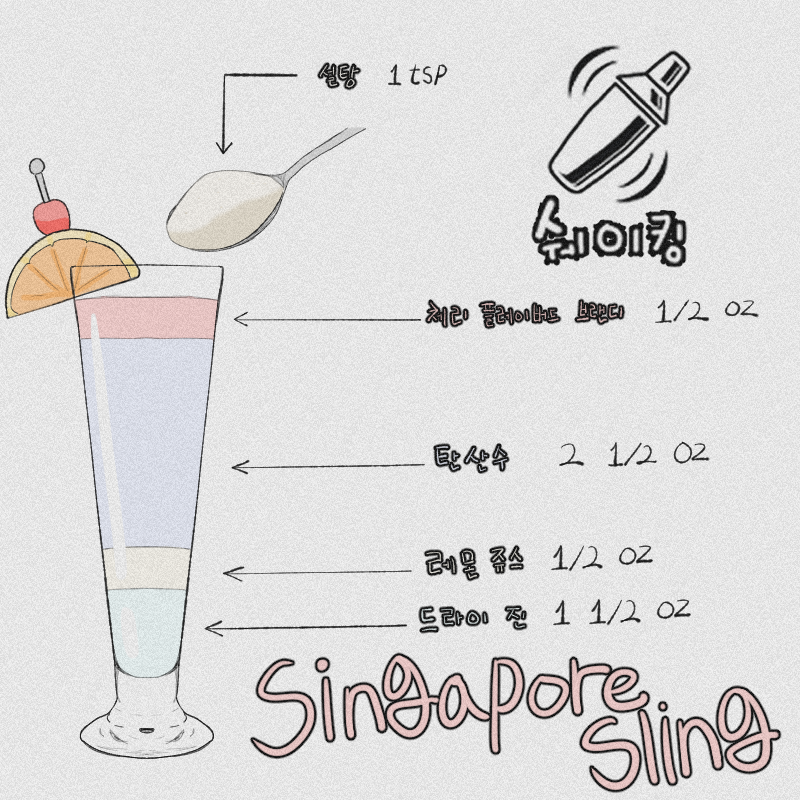 설탕 1 tsp
쉐이킹
체리 플레이버드 브랜디 1/2 oz
탄산수 2 1/2 oz
레몬 쥬스 1/2 oz
드라이 진 1 1/2 oz
Singapore
Sling